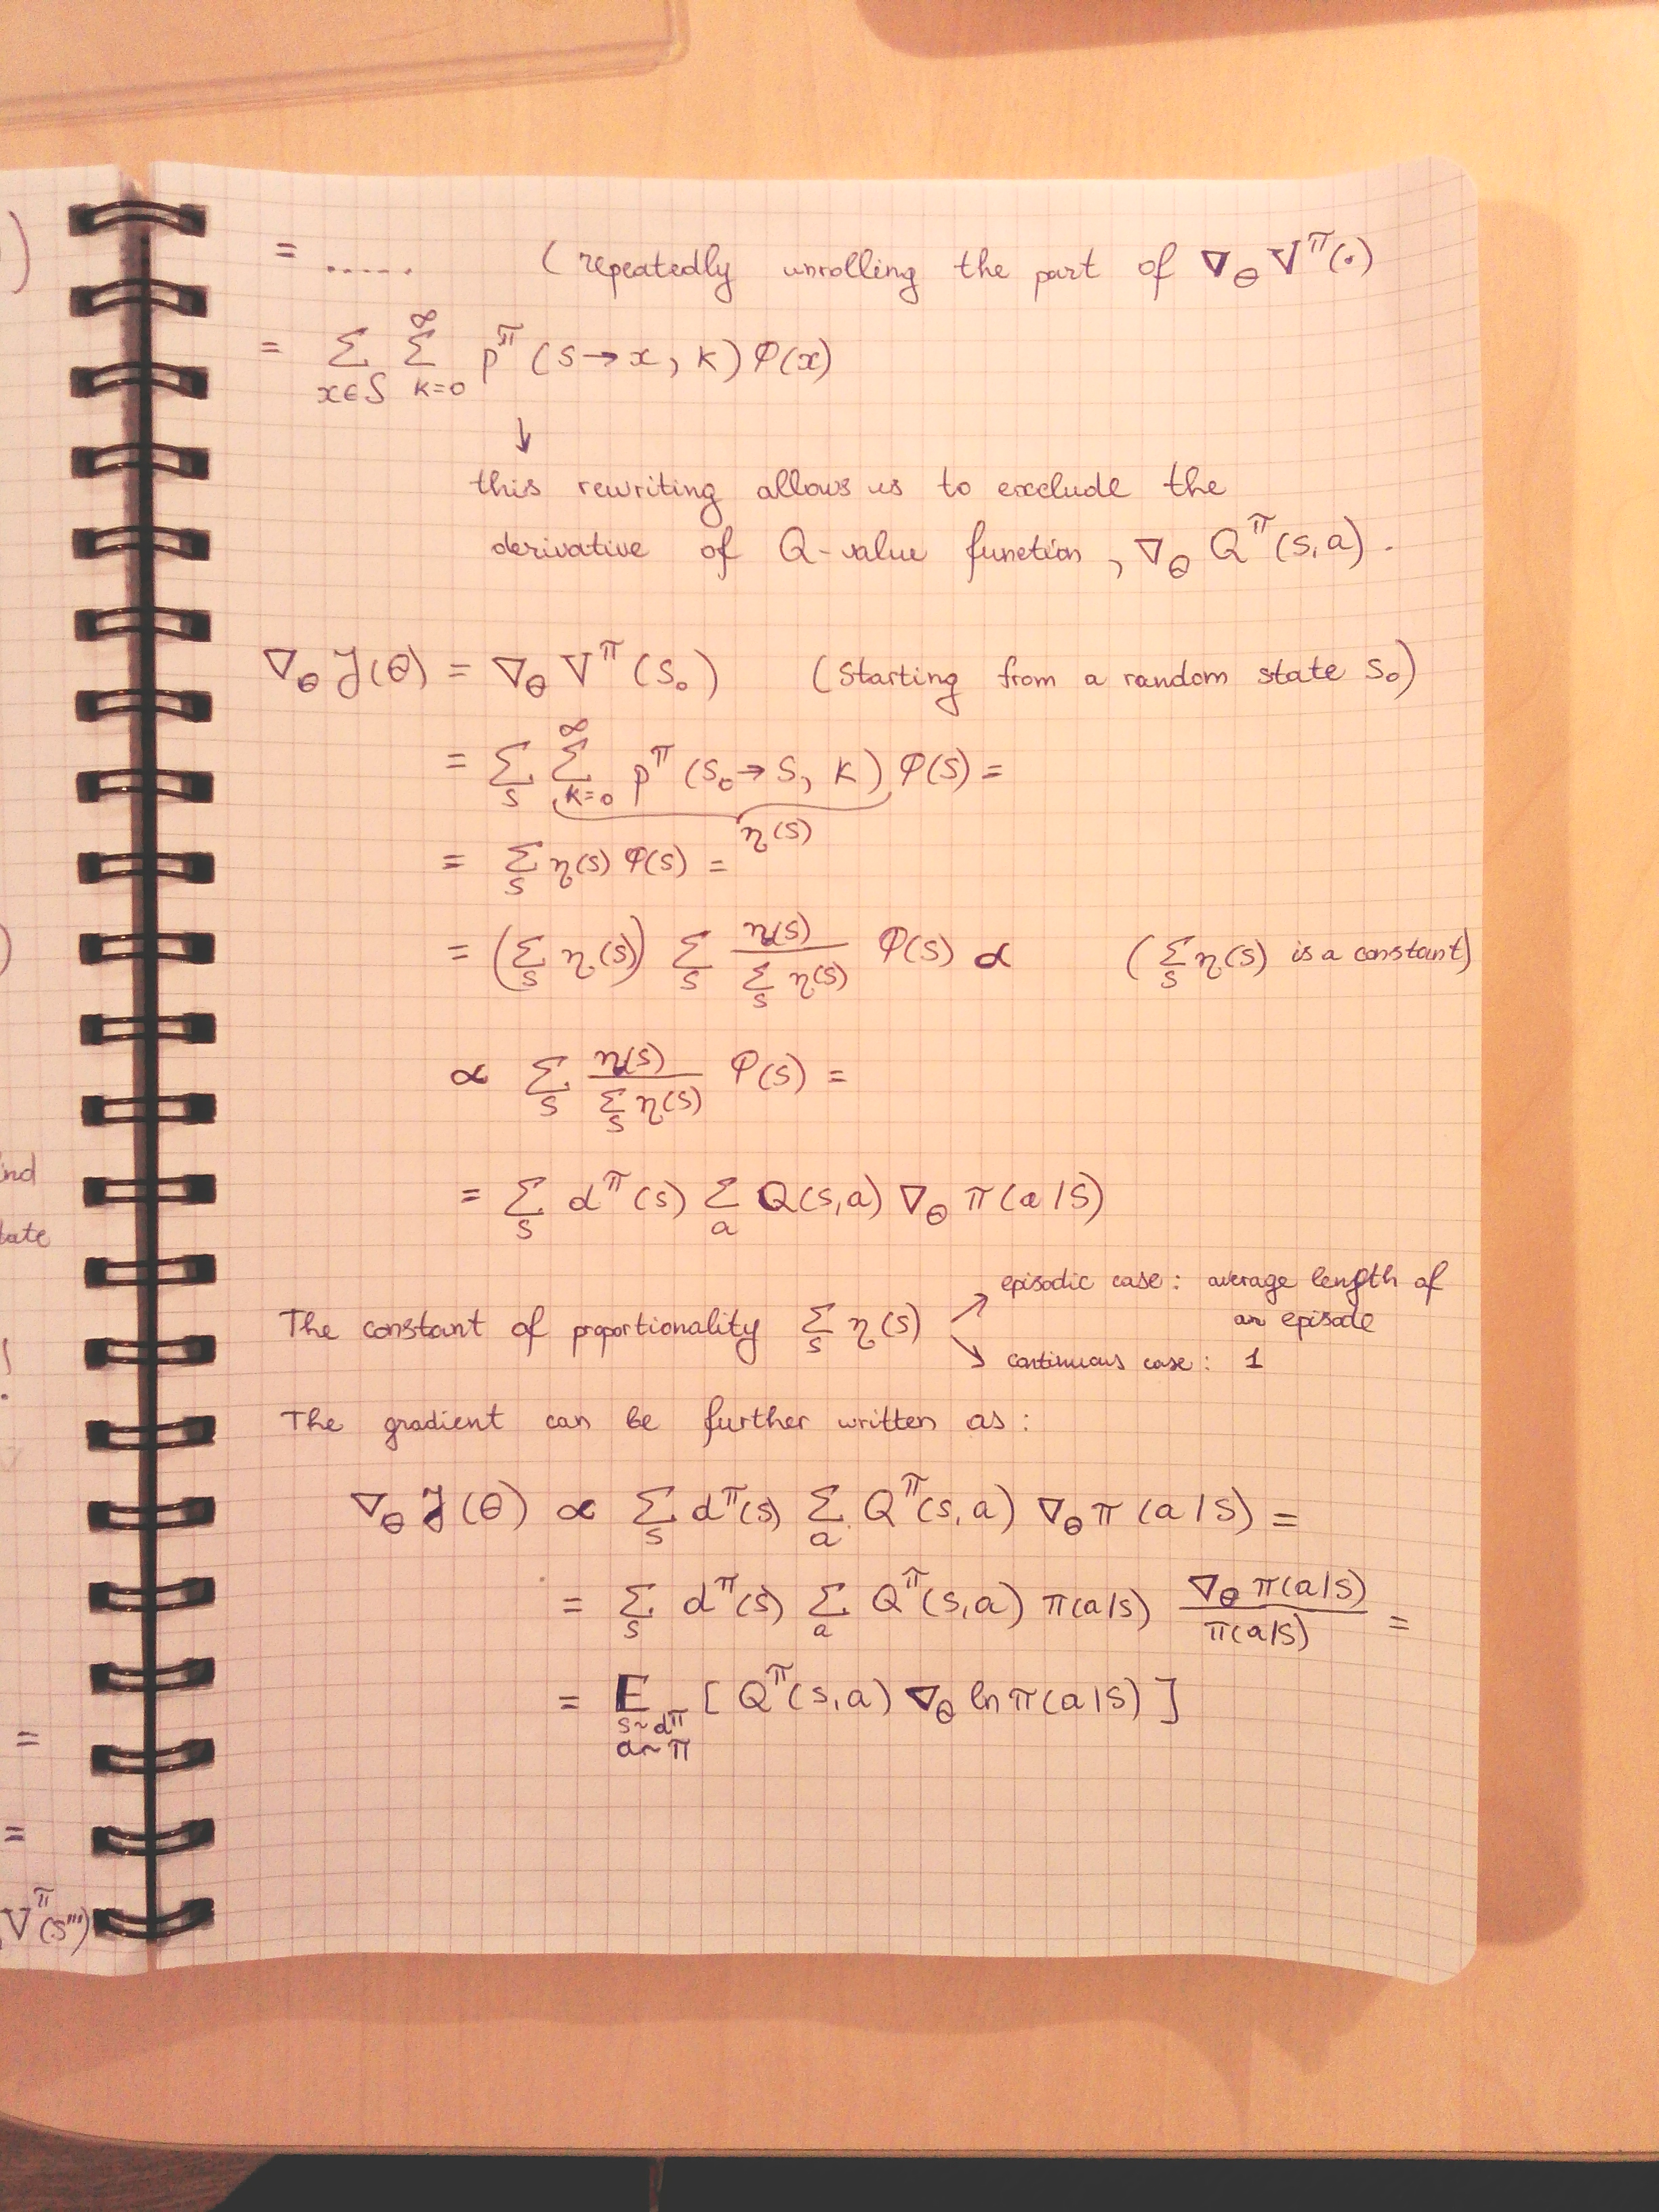 = ..... (repeatedly unrolling the part of ∇_θ V^π(·)
= Σ_{x∈S} Σ_{k=0}^∞ p^π (s→x, k) φ(x)
↓
this rewriting allows us to exclude the
derivative of Q-value function, ∇_θ Q^π(s,a).
∇_θ J(θ) = ∇_θ V^π(s₀) (Starting from a random state s₀)
= Σ_s Σ_{k=0}^∞ p^π (s₀→s, k) φ(s) =
η(s)
= Σ_s η(s) φ(s) =
= (Σ_s η(s)) Σ_s η(s) / Σ_s η(s) φ(s) ∝ (Σ_s η(s) is a constant)
∝ Σ_s η(s) / Σ_s η(s) φ(s) =
= Σ_s d^π(s) Σ_a Q(s,a) ∇_θ π(a|s)
The constant of proportionality Σ_s η(s) ↗ episodic case: average length of
an episode
↘ continuous case: 1
The gradient can be further written as:
∇_θ J(θ) ∝ Σ_s d^π(s) Σ_a Q^π(s,a) ∇_θ π(a|s) =
= Σ_s d^π(s) Σ_a Q^π(s,a) π(a|s) ∇_θ π(a|s) / π(a|s) =
= E_{s~d^π, a~π} [Q^π(s,a) ∇_θ ln π(a|s)]
)
)
tate
=
=
V^π(s''')